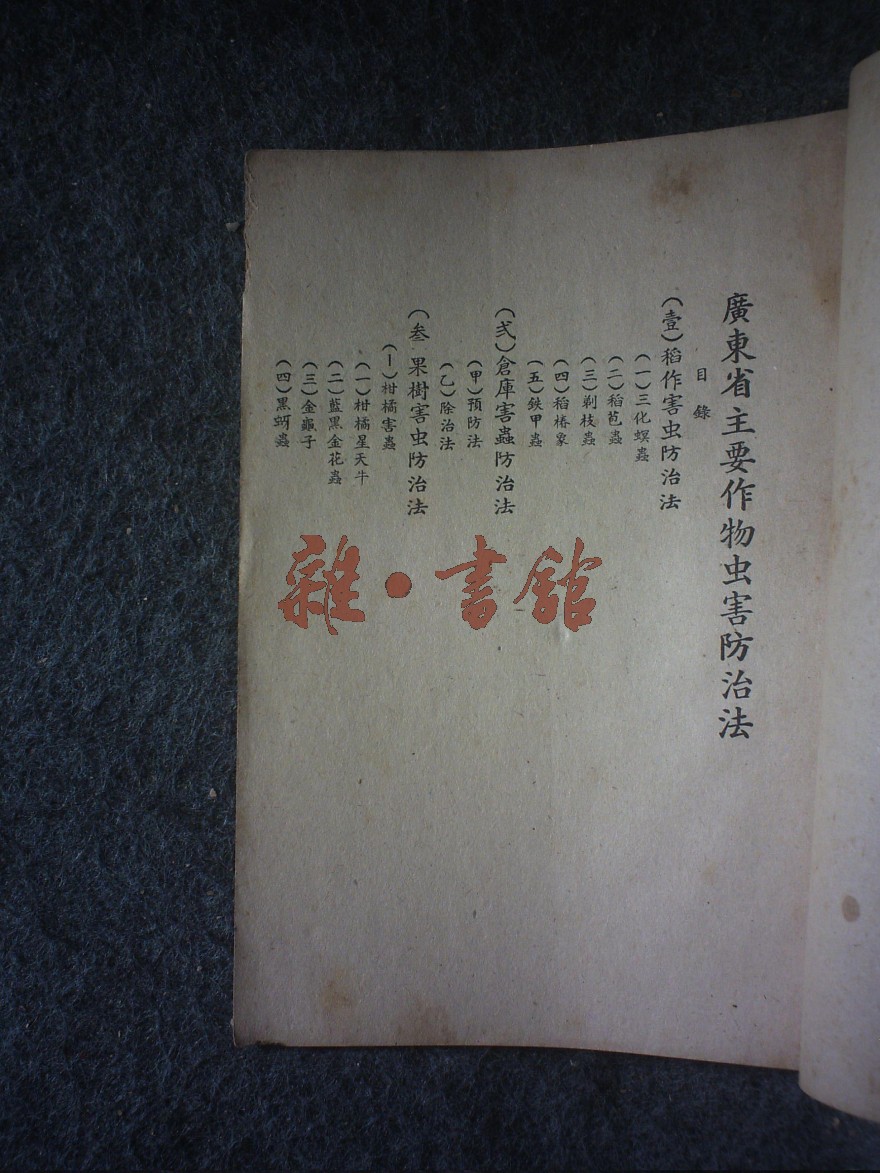 廣東省主要作物虫害防治法
目錄
(壹)稻作害虫防治法
(一)三化螟蟲
(二)稻苞蟲
(三)剃枝蟲
(四)稻椿象
(五)鉄甲蟲
(弍)倉庫害蟲防治法
(甲)預防法
(乙)除治法
(叁)果樹害虫防治法
(I)柑橘害蟲
(一)柑橘星天牛
(二)藍黑金花蟲
(三)金龜子
(四)黑蚜蟲
雜·書館